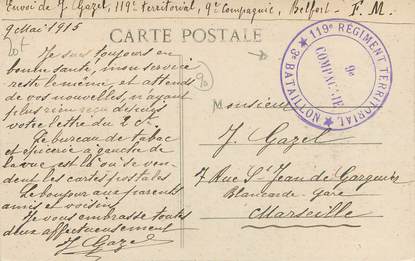 Envoi de J. Gazel, 119e territorial, 9e Compagnie, Belfort - F. M.
9 Mai 1915
CARTE POSTALE
★ 119e RÉGIMENT TERRITORIAL ★ 3e BATAILLON
9e
COMPAGNIE
Je suis toujours en
bonne santé, mon service
reste le même, et attends
de vos nouvelles, n'ayant
plus rien reçu depuis
votre lettre du 2 ct.
Le bureau de tabac
et épicerie à gauche de
la vue est là où se ven-
dent les cartes postales
Le bonjour aux parents
amis et voisins
Je vous embrasse toutes
deux affectueusement
J. Gazel
Monsieur
J. Gazel
7 Rue St Jean de Garguier
Blancarde-gare
Marseille